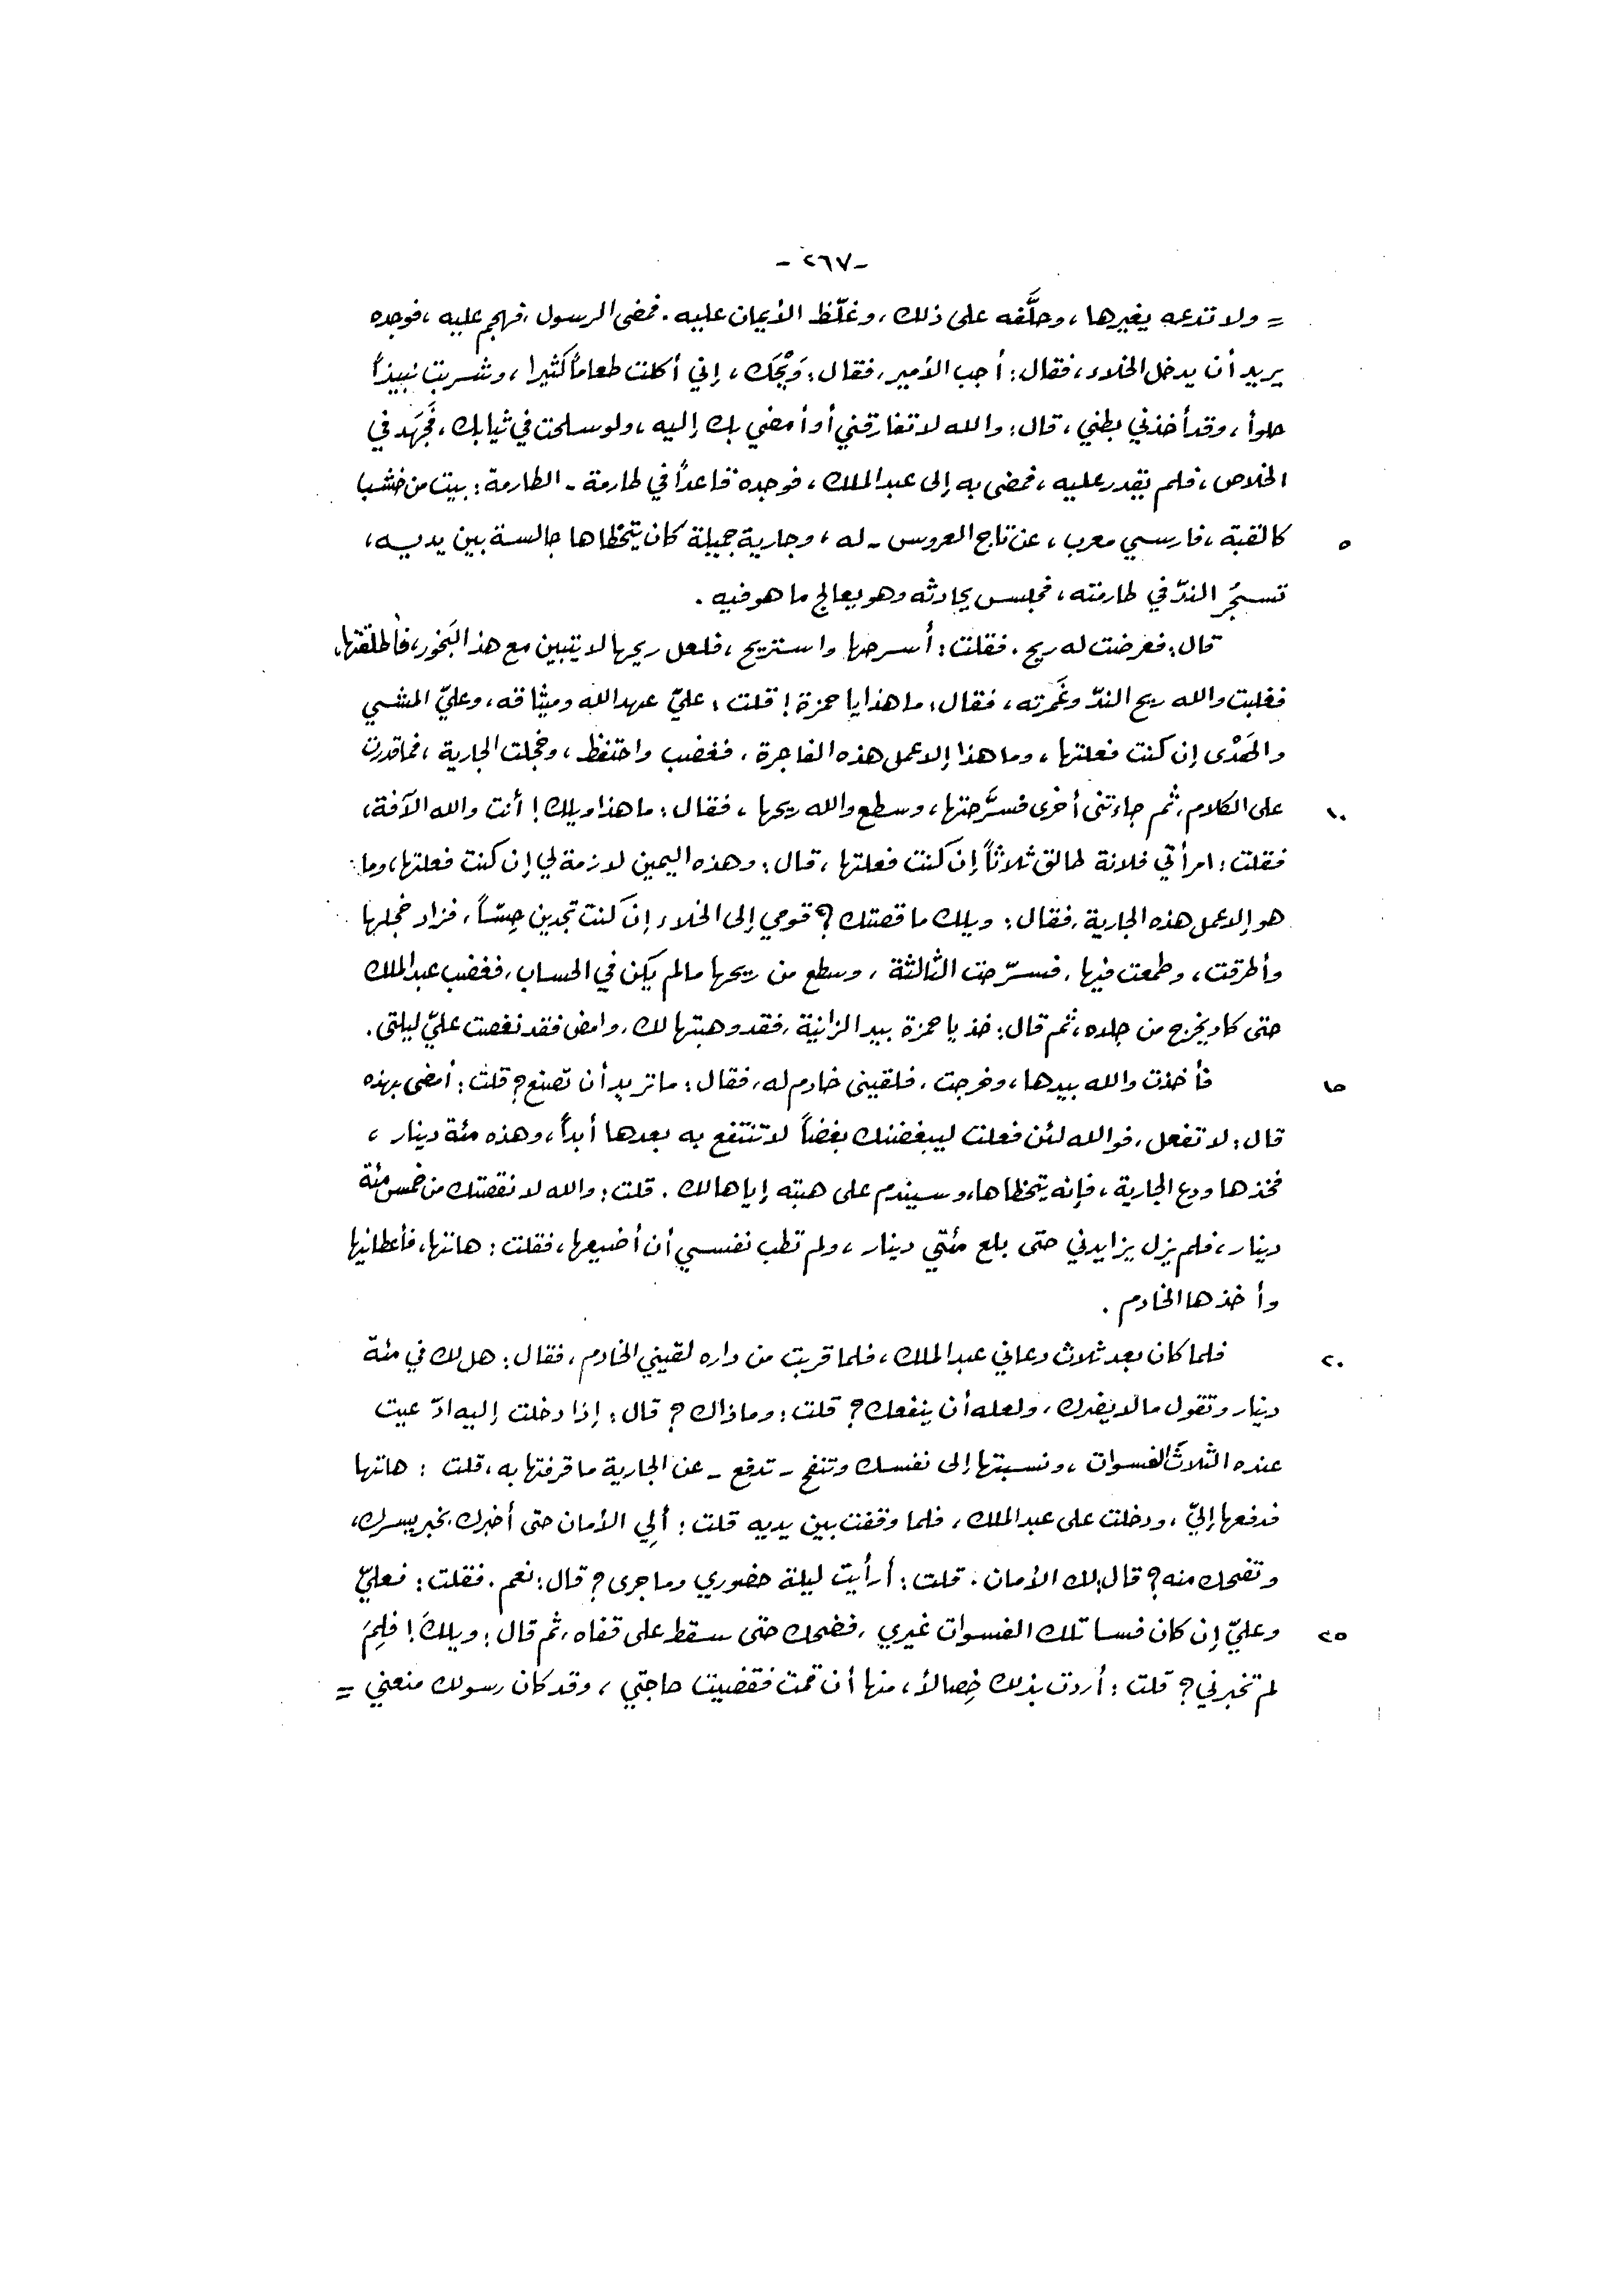 -٢٦٧-
= ولا تدعه يغيرها، وحلَّفه على ذلك، وغلّظ الأيمان عليه. فمضى الرسول، فهجم عليه، فوجده
يريد أن يدخل الخلاء، فقال: أجب الأمير، فقال: وَيْحَك، إني أكلت طعاماً كثيرا، وشربت نبيذاً
حلواً، وقد أخذني بطني، قال: والله لا تفارقني أو أمضي بك إليه، ولو سلحت في ثيابك، فجَهَد في
الخلاص، فلم يقدر عليه، فمضى به إلى عبد الملك، فوجده قاعداً في طارمة - الطارمة: بيت من خشب
٥ كالقبة، فارسي معرب، عن تاج العروس - له، وجارية جميلة كان يتحظاها جالسة بين يديه،
تسجُر الندّ في طارمته، فجلس يحادثه وهو يعالج ما هو فيه.
قال: فعرضت له ريح. فقلت: أسرحها واستريح، فلعل ريحها لا يتبين مع هذا البَخور، فأطلقتها،
فغلبت والله ريح الندّ وغَمرته، فقال: ما هذا يا حمزة! قلت: عليّ عهد الله وميثاقه، وعليّ المشي
والهَدْى إن كنت فعلتها، وما هذا إلا عمل هذه الفاجرة، فغضب واحتفظ، وخجلت الجارية، فما قدرت
١٠ على الكلام، ثم جاءتنى أخرى فسرَّحتها، وسطع والله ريحها، فقال: ما هذا ويلك! أنت والله الآفة،
فقلت: امرأتي فلانة طالق ثلاثاً إن كنت فعلتها، قال: وهذه اليمين لازمة لي إن كنت فعلتها، وما
هو إلا عمل هذه الجارية، فقال: ويلك ما قصتك؟ قومي إلى الخلاء إن كنت تجدين حِسّاً، فزاد خجلها
وأطرقت، وطمعت فيها، فسرّحت الثالثة، وسطع من ريحها مالم يكن في الحساب، فغضب عبد الملك
حتى كاد يخرج من جلده، ثم قال: خذ يا حمزة بيد الزانية، فقد وهبتها لك، وامض فقد نغصت عليّ ليلتى.
١٥ فأخذت والله بيدها، وخرجت، فلقينى خادم له، فقال: ما تريد أن تصنع؟ قلت: أمضى بهذه
قال: لا تفعل، فوالله لئن فعلت ليبغضنك بغضاً لا تنتفع به بعدها أبداً، وهذه مئة دينار،
فخذها ودع الجارية، فإنه يتحظاها، وسيندم على هبته إياها لك. قلت: والله لا نقصتك من خمس مئة
دينار، فلم يزل يزايدني حتى بلغ مئتي دينار، ولم تطب نفسي أن أضيعها، فقلت: هاتها، فأعطانيها
وأخذها الخادم.
٢٠ فلما كان بعد ثلاث دعاني عبد الملك، فلما قربت من داره لقيني الخادم، فقال: هل لك في مئة
دينار وتقول ما لا يضرك، ولعله أن ينفعك؟ قلت: وما ذاك؟ قال: إذا دخلت إليه ادّعيت
عنده الثلاثَ الفسوات، ونسبتها إلى نفسك وتنفح - تدفع - عن الجارية ما قرفتها به، قلت: هاتها
فدفعها إليّ، ودخلت على عبد الملك، فلما وقفت بين يديه قلت: ألِي الأمان حتى أخبرك بخبر يسرك،
وتضحك منه؟ قال: لك الأمان. قلت: أرأيت ليلة حضوري وما جرى؟ قال: نعم. فقلت: فعليّ
٢٥ وعليّ إن كان فسا تلك الفسوات غيري، فضحك حتى سقط على قفاه، ثم قال: ويلكَ! فلِمَ
لم تخبرني؟ قلت: أردت بذلك خِصالاً، منها أن قمت فقضيت حاجتي، وقد كان رسولك منعني =